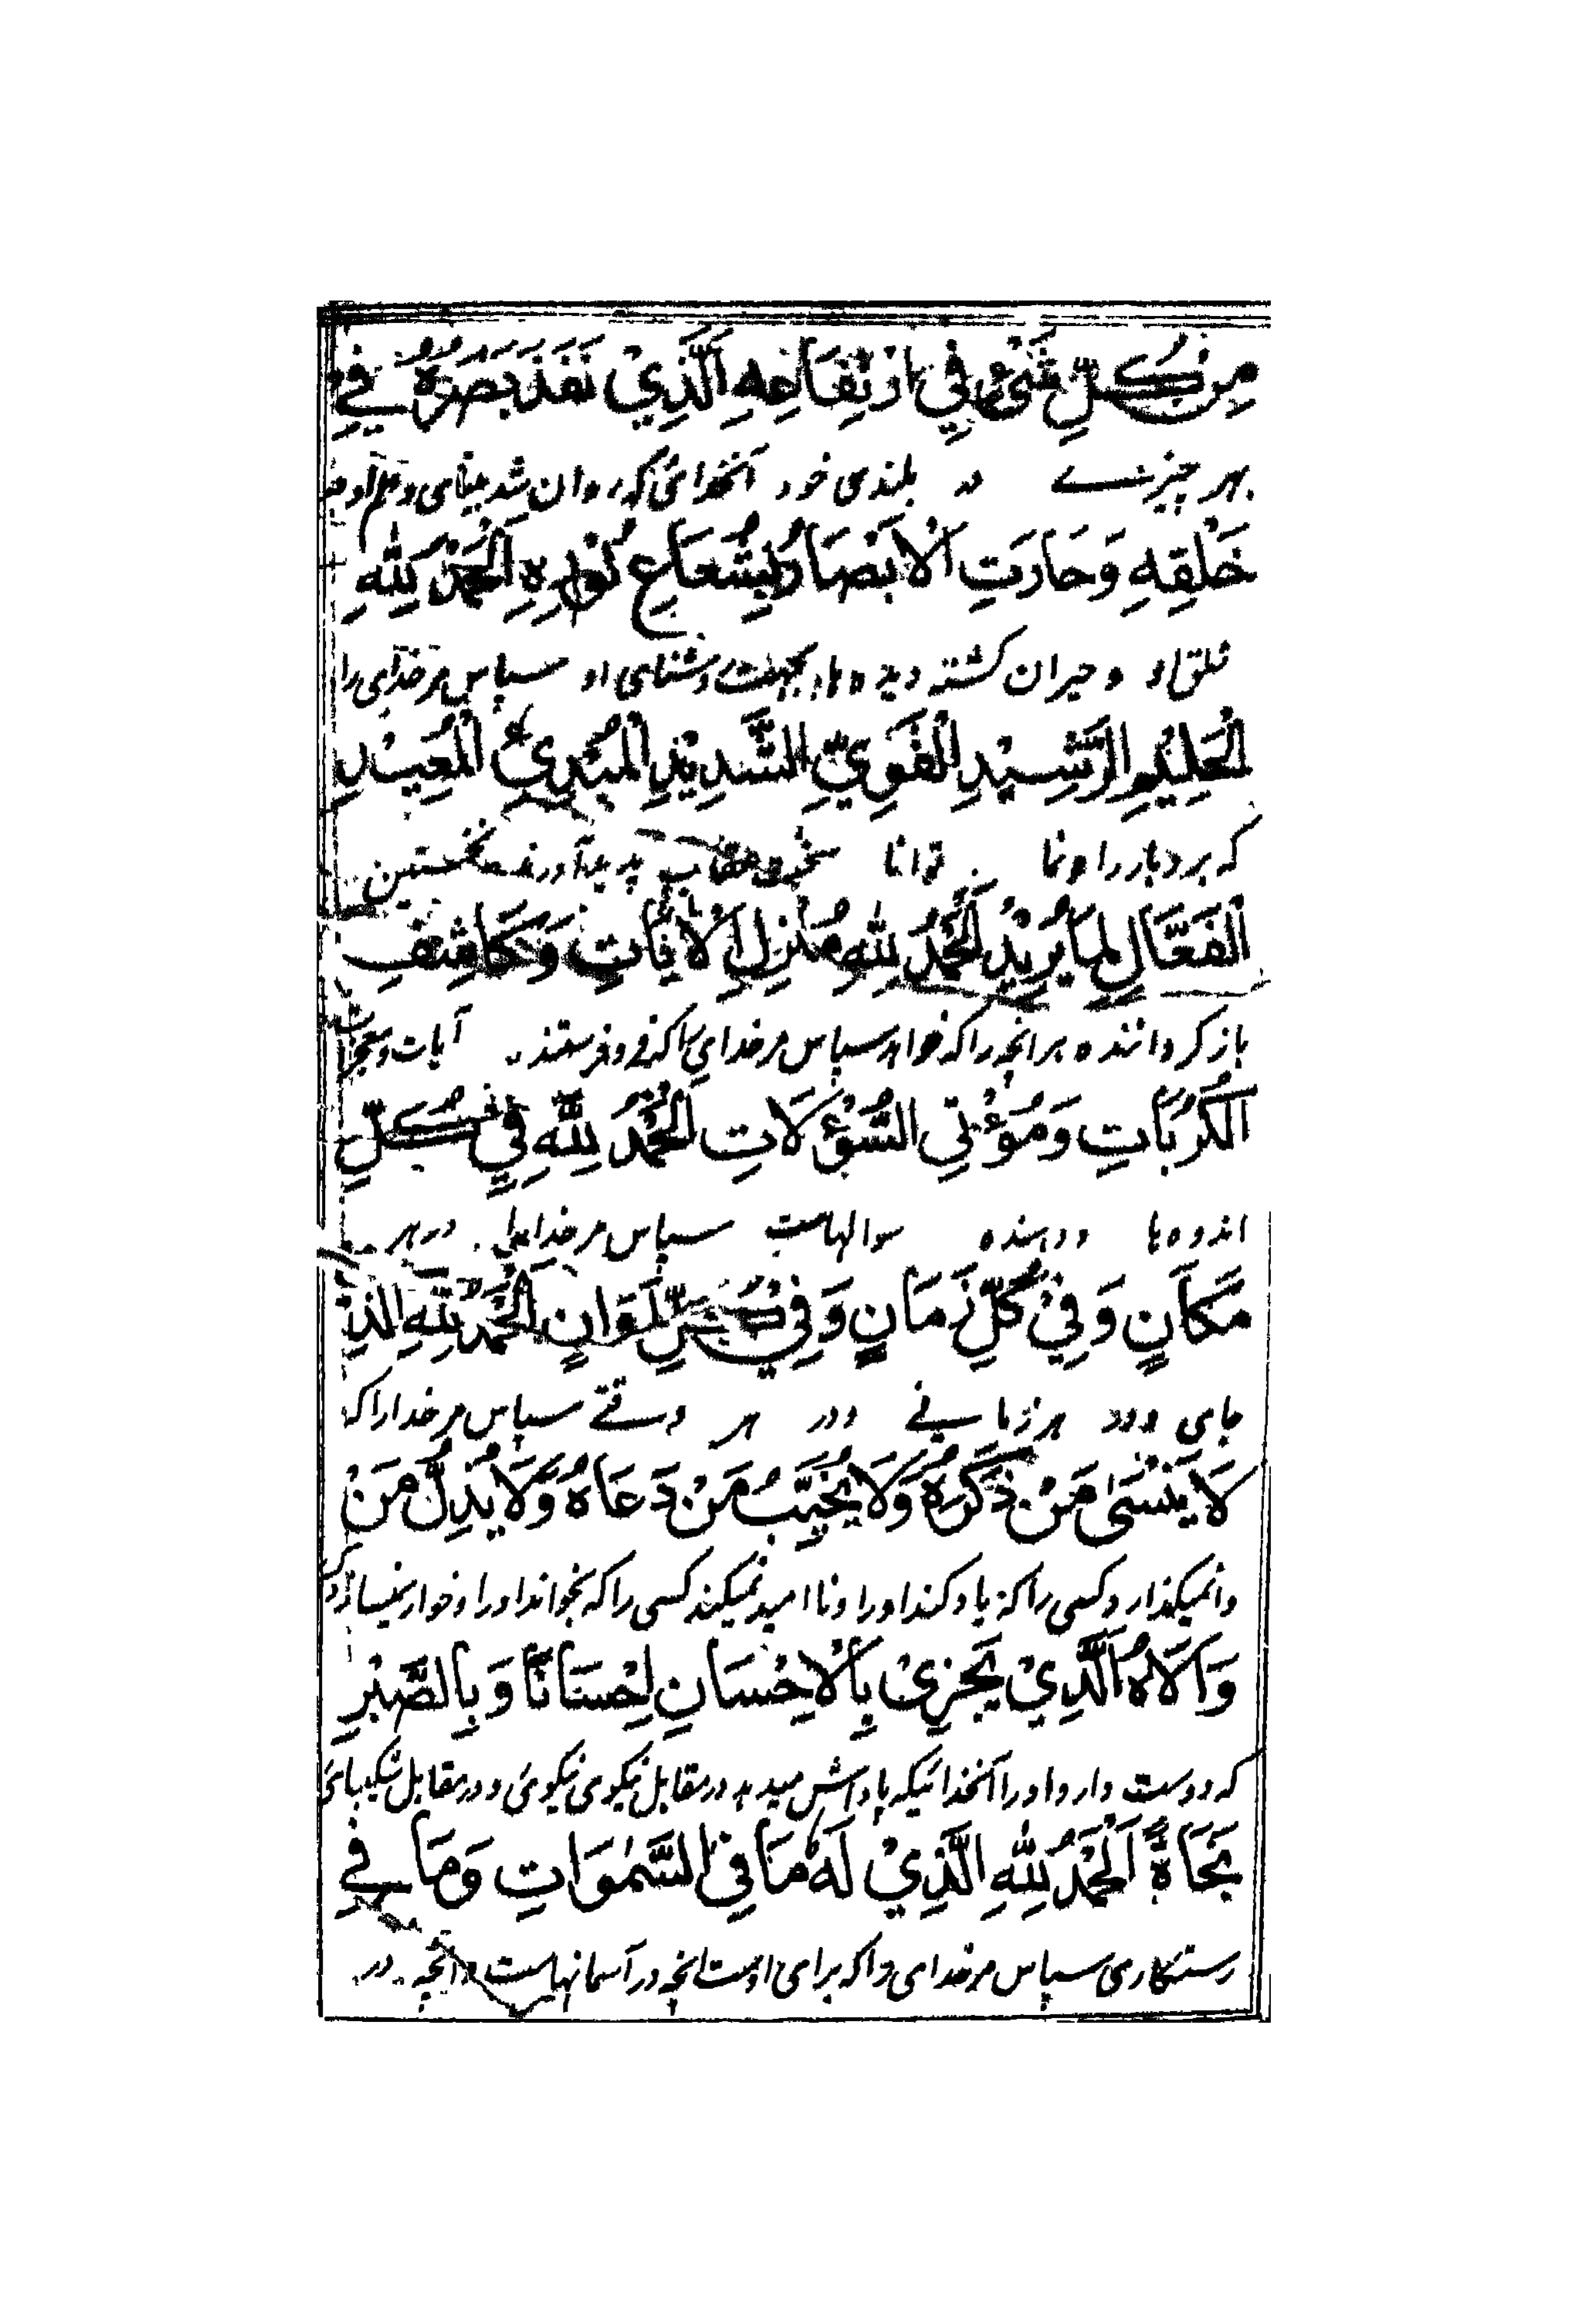 مِنْ كُلِّ شَيْءٍ فِي ارْتِفَاعِهِ اَلَّذِيْ نَفَذَ بَصَرُهُ فِي
بهر چیزے در بلندی خود آنخدائی که روان شد بینائی و علم او در
خَلْقِهِ وَحَارَتِ الْاَبْصَارُ بِشُعَاعِ نُوْرِهِ اَلْحَمْدُ لِلّٰهِ
خلق او و حیران کشته دیده ها بجهت روشنای او سپاس مر خدای را
الْحَلِيْمِ الرَّشِيْدِ الْقَوِيِّ الشَّدِيْدِ الْمُبْدِئِ الْمُعِيْدِ
که بردبار راه نما توانا سخت عقاب پدید آورنده نخستین
الْفَعَّالِ لِمَا يُرِيْدُ اَلْحَمْدُ لِلّٰهِ مُنْزِلِ الْاٰيَاتِ وَكَاشِفِ
باز کرداننده هر انچه را که خواهد سپاس مر خدای را که فرو فرستنده آیات و معجزات
الْكُرُبَاتِ وَمُؤْتِي السُّؤْلَاتِ اَلْحَمْدُ لِلّٰهِ فِيْ كُلِّ
اندوه ها و دهنده سوالهاست سپاس مر خدایرا در هر
مَكَانٍ وَفِيْ كُلِّ زَمَانٍ وَفِيْ كُلِّ اَوَانٍ اَلْحَمْدُ لِلّٰهِ الَّذِيْ
جای و در هر زمانے و در هر وقتے سپاس مر خدا را که
لَا يَنْسٰى مَنْ ذَكَرَهُ وَلَا يُخَيِّبُ مَنْ دَعَاهُ وَلَا يُذِلُّ مَنْ
وانمیکذارد کسی را که یاد کند او را و نا امید نمیکند کسی را که بخواند او را و خوار نمیسازد
وَالَاهُ اَلَّذِيْ يَجْزِيْ بِالْاِحْسَانِ اِحْسَانًا وَبِالصَّبْرِ
که دوست دارد او را آنخدائیکه پاداش میدهد در مقابل نیکوی نیکوئی و در مقابل شکیبائی
نَجَاةً اَلْحَمْدُ لِلّٰهِ الَّذِيْ لَهُ مَا فِي السَّمٰوَاتِ وَمَا فِي
رستکاری سپاس مر خدای را که برای اوست انچه در آسمانهاست و انچه در